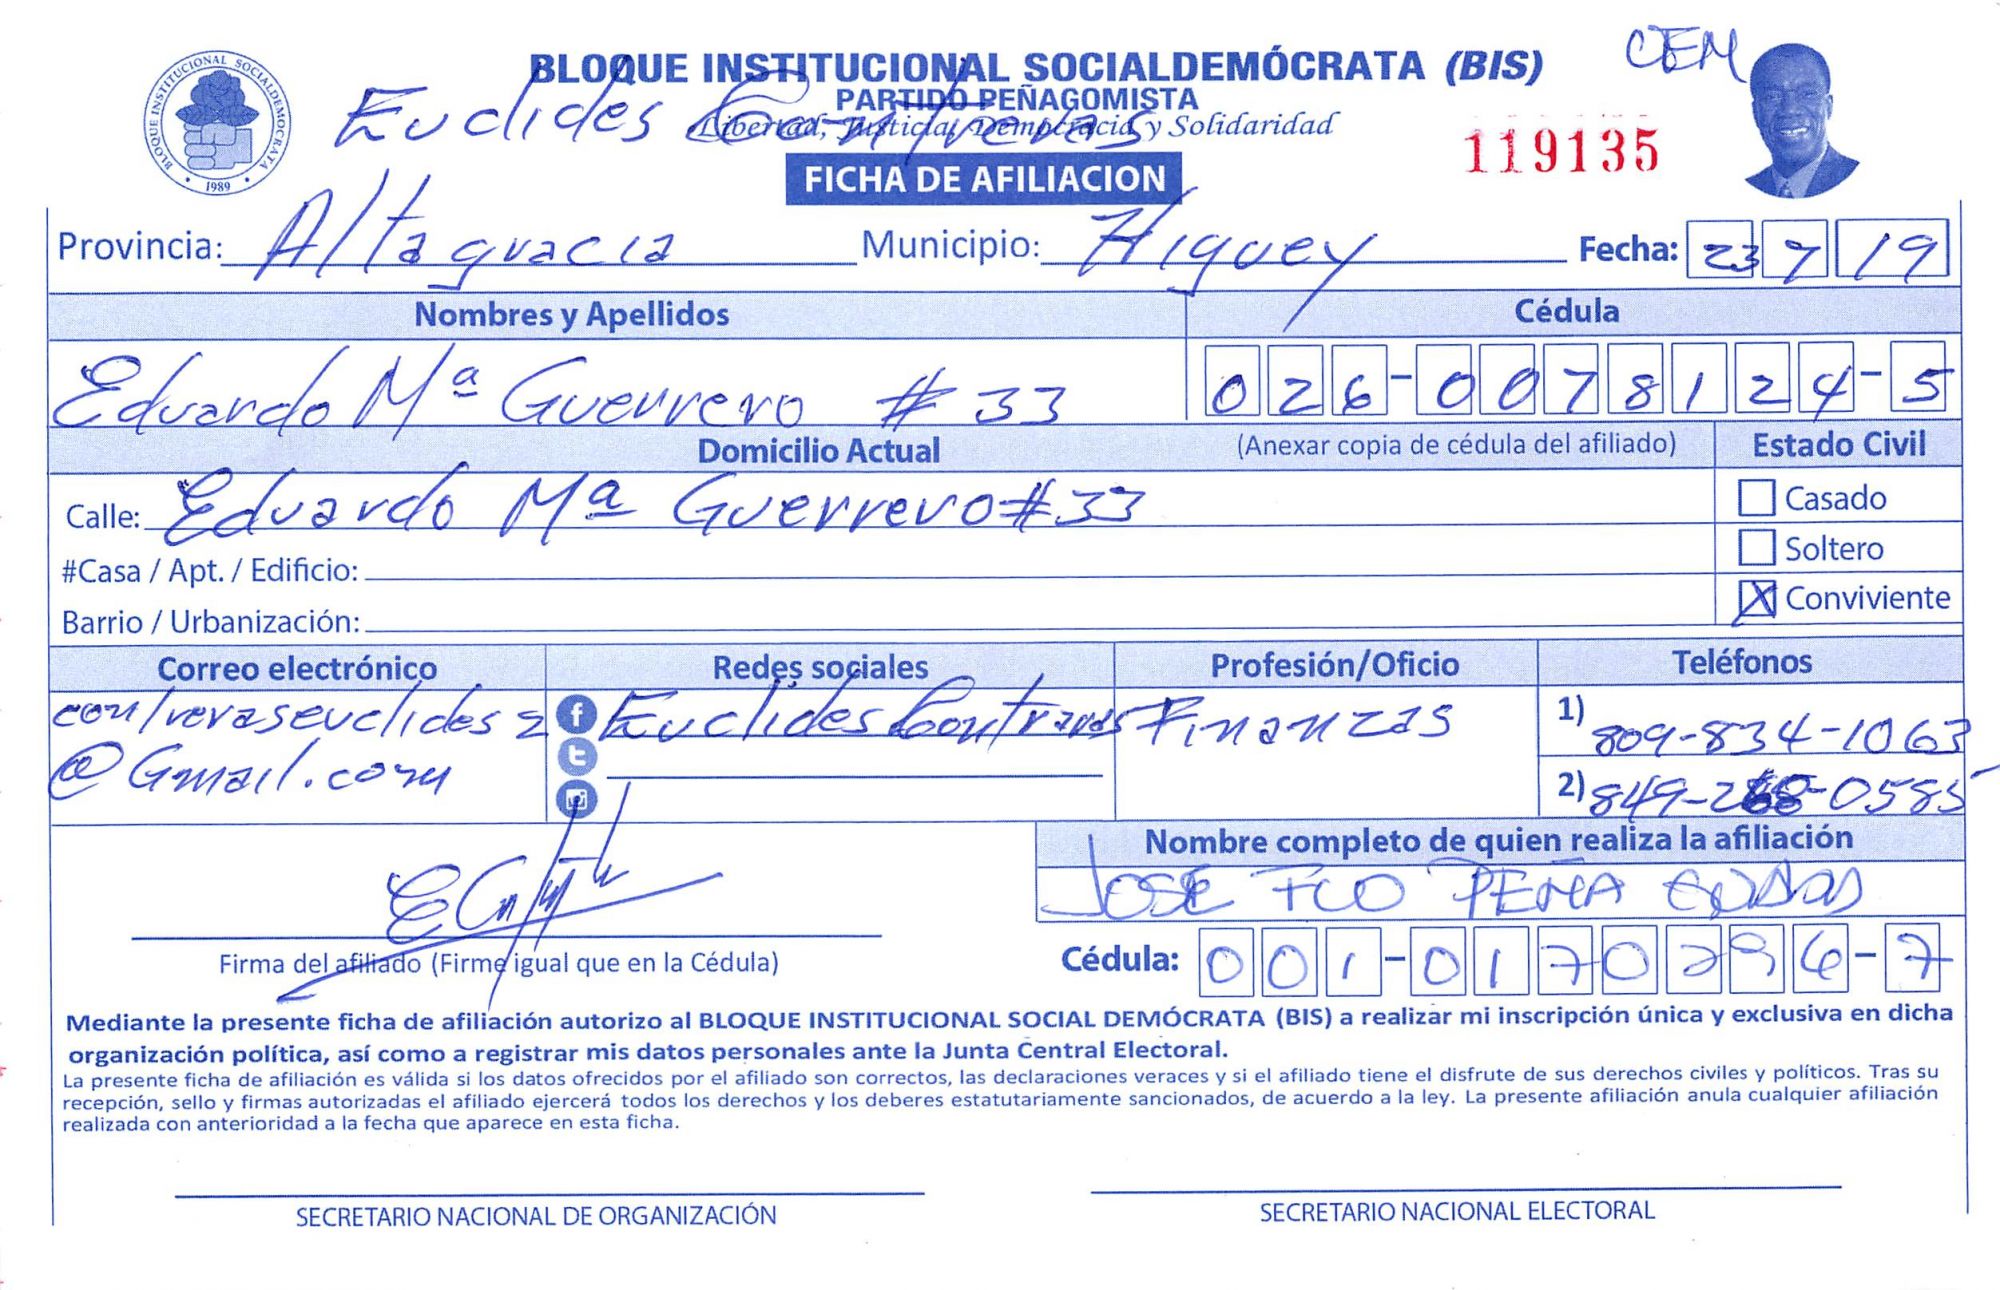 CEM
BLOQUE INSTITUCIONAL SOCIALDEMÓCRATA (BIS)
PARTIDO PEÑAGOMISTA
Libertad, Justicia, Democracia y Solidaridad
Euclides Contreras
BLOQUE INSTITUCIONAL SOCIALDEMOCRATA
1989
119135
FICHA DE AFILIACION
Provincia: Altagracia Municipio: Higuey Fecha: 23 7 19
Nombres y Apellidos Cédula
Eduardo Mª Guerrero # 33 026-0078124-5
Domicilio Actual (Anexar copia de cédula del afiliado) Estado Civil
Calle: Eduardo Mª Guerrero #33 Casado
#Casa / Apt. / Edificio: Soltero
Barrio / Urbanización: X Conviviente
Correo electrónico Redes sociales Profesión/Oficio Teléfonos
contreraseuclides2 Euclides Contreras Finanzas 1) 809-834-1063
@Gmail.com 2) 849-268-0585
Nombre completo de quien realiza la afiliación
JOSE FCO PEÑA
Cédula: 001-0170296-7
Firma del afiliado (Firme igual que en la Cédula)
Mediante la presente ficha de afiliación autorizo al BLOQUE INSTITUCIONAL SOCIAL DEMÓCRATA (BIS) a realizar mi inscripción única y exclusiva en dicha
organización política, así como a registrar mis datos personales ante la Junta Central Electoral.
La presente ficha de afiliación es válida si los datos ofrecidos por el afiliado son correctos, las declaraciones veraces y si el afiliado tiene el disfrute de sus derechos civiles y políticos. Tras su
recepción, sello y firmas autorizadas el afiliado ejercerá todos los derechos y los deberes estatutariamente sancionados, de acuerdo a la ley. La presente afiliación anula cualquier afiliación
realizada con anterioridad a la fecha que aparece en esta ficha.
SECRETARIO NACIONAL DE ORGANIZACIÓN SECRETARIO NACIONAL ELECTORAL